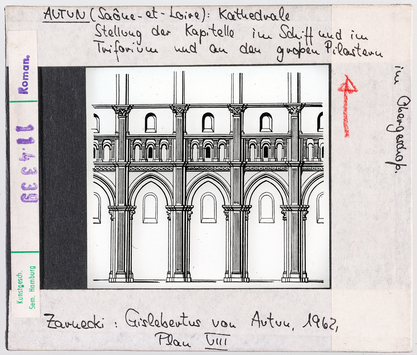 AUTUN (Saône-et-Loire): Kathedrale
Stellung der Kapitelle im Schiff und im
Triforium und an den großen Pilastern
im Obergeschoß.
Roman.
Kunstgesch.
Sem. Hamburg
Zarnecki: Gislebertus von Autun, 1962,
Plan VIII